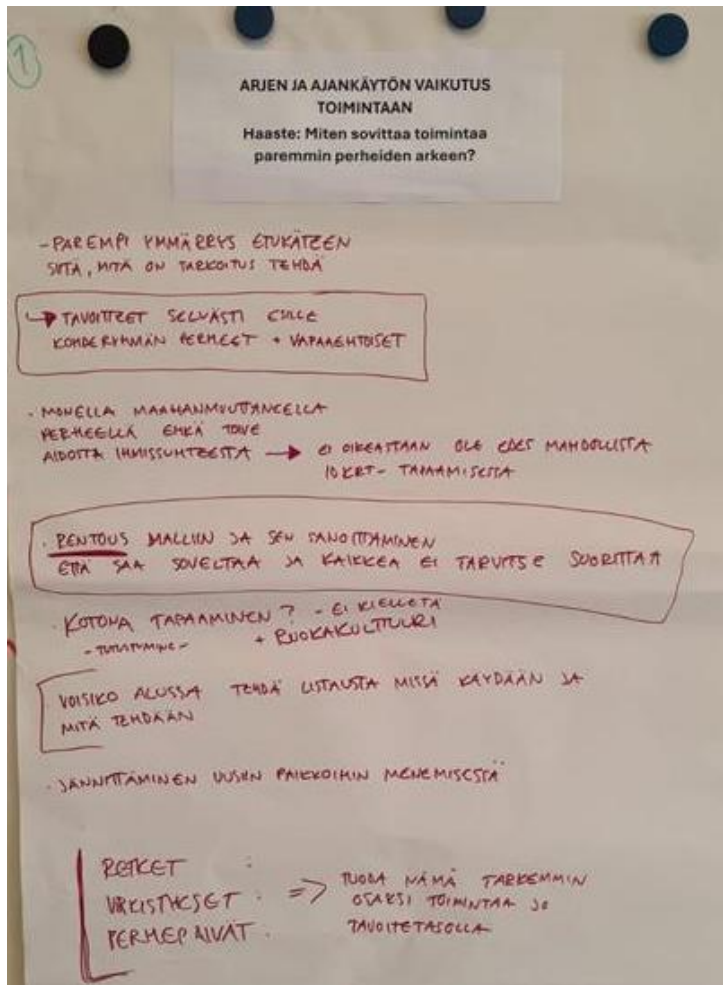 1
ARJEN JA AJANKÄYTÖN VAIKUTUS
TOIMINTAAN
Haaste: Miten sovittaa toimintaa
paremmin perheiden arkeen?
- PAREMPI YMMÄRRYS ETUKÄTEEN
SIITÄ, MITÄ ON TARKOITUS TEHDÄ
→ TAVOITTEET SELVÄSTI ESILLE
KOHDERYHMÄN PERHEET + VAPAAEHTOISET
· MONELLA MAAHANMUUTTANEELLA
PERHEELLÄ EHKÄ TOIVE
AIDOSTA IHMISSUHTEESTA → EI OIKEASTAAN OLE EDES MAHDOLLISTA
10 KRT- TAPAAMISESSA
· RENTOUS MALLIIN JA SEN SANOITTAMINEN
ETTÄ SAA SOVELTAA JA KAIKKEA EI TARVITSE SUORITTAA
· KOTONA TAPAAMINEN? - EI KIELLETÄ
- TUTUSTUMINE - + RUOKAKULTTUURI
· VOISIKO ALUSSA TEHDÄ LISTAUSTA MISSÄ KÄYDÄÄN JA
MITÄ TEHDÄÄN
· JÄNNITTÄMINEN UUSIIN PAIKKOIHIN MENEMISESSÄ
RETKET
VIRKISTYKSET => TUODA NÄMÄ TARKEMMIN
PERHEPÄIVÄT OSAKSI TOIMINTAA JO
TAVOITETASOLLA